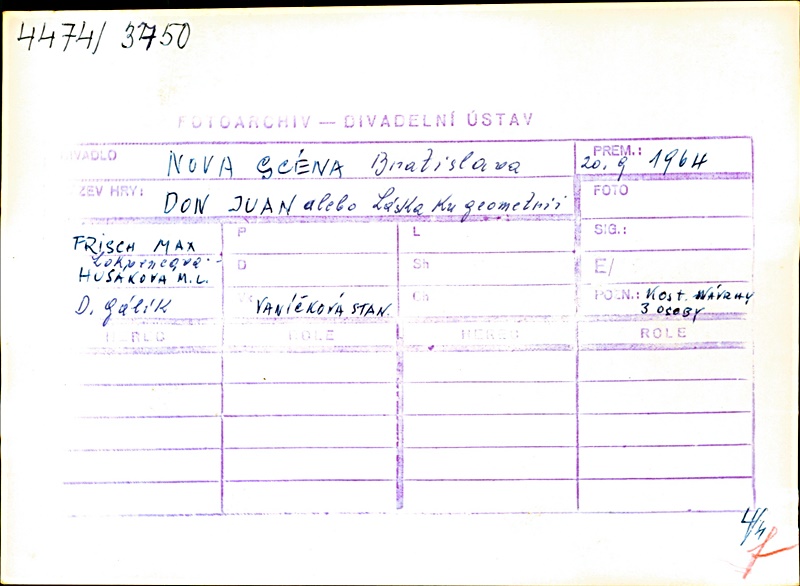 4474/ 3750
FOTOARCHIV — DIVADELNÍ ÚSTAV
DIVADLO NOVA SCÉNA Bratislava PREM.: 20. 9 1964
ZEV HRY: DON JUAN alebo Láska ku geometrii FOTO
FRISCH MAX P L SIG.:
HUSÁKOVA M. L. D Sh E/
D. Gálik VANÍČKOVÁ STAN. Ch POZN.: Kost. NÁVRHY
3 OSOBY
HEREC ROLE HEREC ROLE
4/4